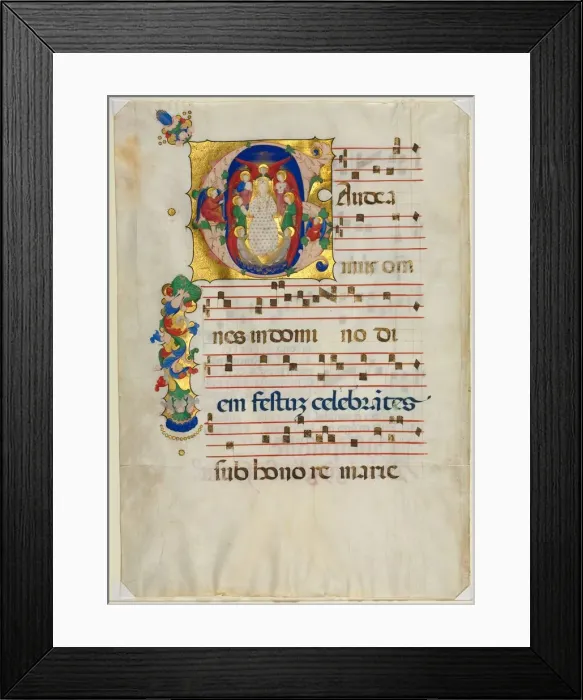 Gaudea
mus om
nes in domi no di
em festuz celebrates
sub honore marie